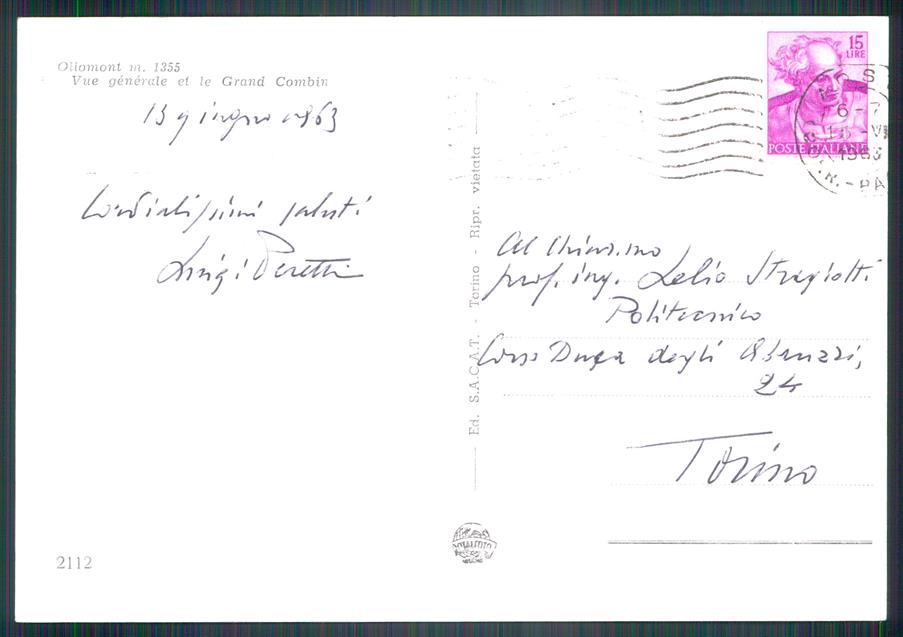 Ollomont m. 1355
Vue générale et le Grand Combin
13 giugno 1963
Cordialissimi saluti
Luigi Peretti
Ed. S.A.C.A.T. - Torino - Ripr. vietata
15
LIRE
POSTE ITALIANE
1963
Al Chiar.mo
prof. ing. Lelio Stragiotti
Politecnico
Corso Duca degli Abruzzi,
24
Torino
2112